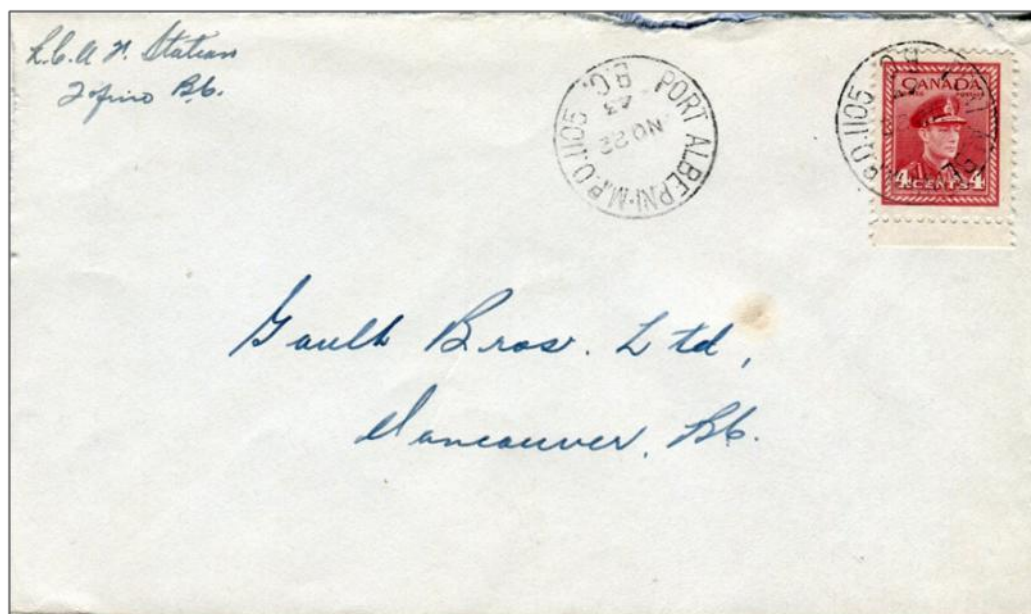 R.C.A.F. Station
Tofino B.C.
PORT ALBERNI·M.P.O.1105 B.C.
NO 22
43
CANADA
4 CENTS 4
M.P.O.1105 B.C.
Gault Bros. Ltd,
Vancouver, B.C.